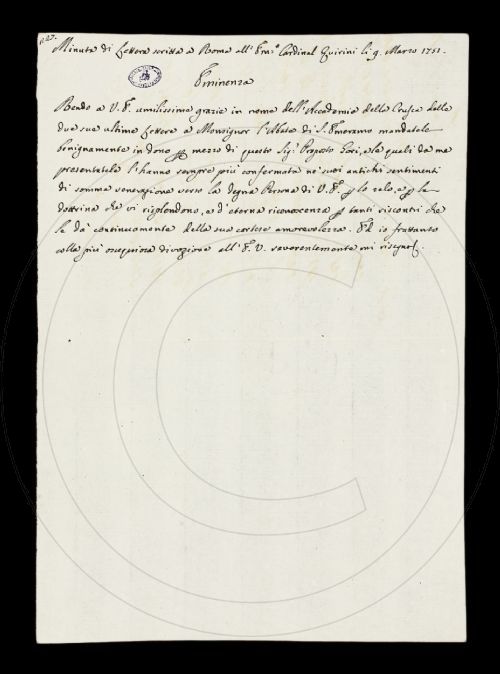 227.
Minuta di Lettera scritta a Roma all' Em.º Cardinal Quirini li 9. Marzo 1751.
Eminenza
Rendo a V. E. umilissime grazie in nome dell'Accademia della Crusca delle
due sue ultime Lettere a Monsignor l'Abate di S. Emeramo mandatele
benignamente in dono p mezzo di questo Sig. Proposto Gori, e le quali da me
presentatele l'hanno sempre più confermata ne' suoi antichi sentimenti
di somma venerazione verso la degna Persona di V. E. p lo zelo, e p la
dottrina che vi risplendono, e d'eterna riconoscenza p tanti riscontri che
le dà continuamente della sua cortese amorevolezza. Ed io frattanto
colla più ossequiosa divozione all' E. V. reverentemente mi rassegno.